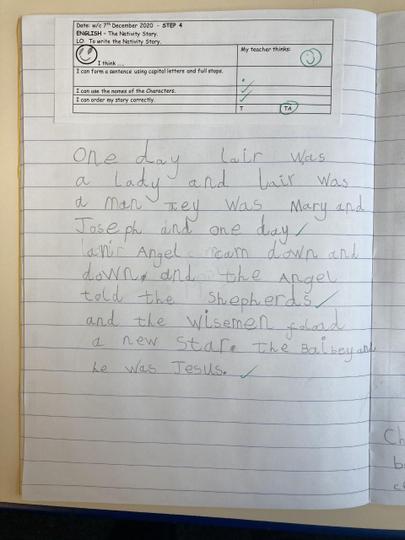 Date: w/c 7th December 2020 - STEP 4
ENGLISH - The Nativity Story.
LO: To write the Nativity Story.
I think ....
My teacher thinks:
I can form a sentence using capital letters and full stops.
I can use the names of the Characters.
I can order my story correctly.
T TA
One day lair was
a lady and lair was
a man they was Mary and
Joseph and one day
Angel cam down and
down. and the Angel
told the Shepherds
and the wisemen
a new Star. the and
he was Jesus.
Ch
b